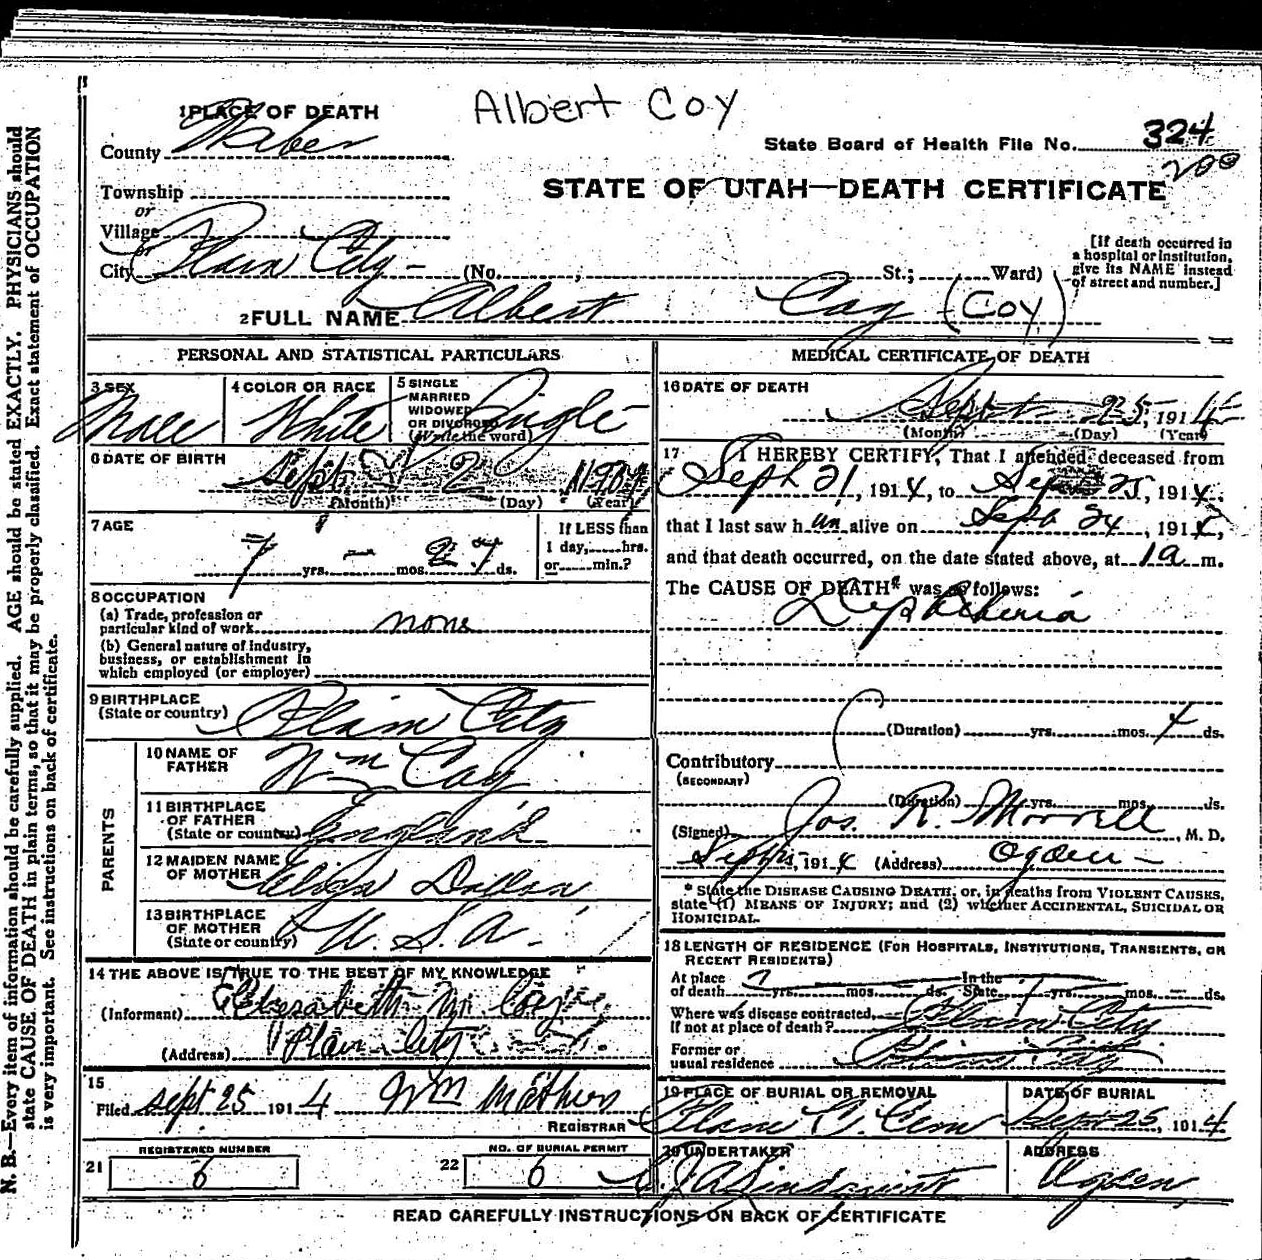 Albert Coy
1 PLACE OF DEATH
County Weber
State Board of Health File No. 324
200
Township
or
Village
or
City Plain City (No. , St.; Ward)
STATE OF UTAH—DEATH CERTIFICATE
[If death occurred in a hospital or institution, give its NAME instead of street and number.]
2 FULL NAME Albert Coy (Coy)
PERSONAL AND STATISTICAL PARTICULARS
3 SEX
Male
4 COLOR OR RACE
White
5 SINGLE
MARRIED
WIDOWED
OR DIVORCED
(Write the word)
Single
6 DATE OF BIRTH
Sept 2
(Month) (Day) (Year)
7 AGE
7 yrs. — mos. 27 ds.
If LESS than
1 day, hrs.
or min.?
8 OCCUPATION
(a) Trade, profession or
particular kind of work none
(b) General nature of industry,
business, or establishment in
which employed (or employer)
9 BIRTHPLACE
(State or country) Plain City
PARENTS
10 NAME OF
FATHER Wm Coy
11 BIRTHPLACE
OF FATHER
(State or country) England
12 MAIDEN NAME
OF MOTHER
13 BIRTHPLACE
OF MOTHER
(State or country) U. S. A.
14 THE ABOVE IS TRUE TO THE BEST OF MY KNOWLEDGE
(Informant) Elizabeth M.
(Address) Plain City
15
Filed Sept 25 1914 Wm
REGISTRAR
REGISTERED NUMBER
21 6
NO. OF BURIAL PERMIT
22 6
MEDICAL CERTIFICATE OF DEATH
16 DATE OF DEATH
Sept 25, 1914
(Month) (Day) (Year)
17 I HEREBY CERTIFY, That I attended deceased from
Sept 21, 1914, to Sep 25, 1914,
that I last saw him alive on Sept 24, 1914,
and that death occurred, on the date stated above, at 1 a m.
The CAUSE OF DEATH* was as follows:
Diphtheria
(Duration) yrs. mos. 4 ds.
Contributory
(SECONDARY)
(Duration) yrs. mos. ds.
(Signed) Jos. R. Morrell, M. D.
Sept, 1914 (Address) Ogden
* State the DISEASE CAUSING DEATH; or, in deaths from VIOLENT CAUSES,
state (1) MEANS OF INJURY; and (2) whether ACCIDENTAL, SUICIDAL OR
HOMICIDAL.
18 LENGTH OF RESIDENCE (FOR HOSPITALS, INSTITUTIONS, TRANSIENTS, OR
RECENT RESIDENTS)
At place
of death 7 yrs. mos. ds. In the State 7 yrs. mos. ds.
Where was disease contracted,
If not at place of death? Plain City
Former or
usual residence Plain City
19 PLACE OF BURIAL OR REMOVAL
Plain C. Cem
DATE OF BURIAL
Sept 25, 1914
20 UNDERTAKER
Lindquist
ADDRESS
Ogden
READ CAREFULLY INSTRUCTIONS ON BACK OF CERTIFICATE
N. B.—Every item of information should be carefully supplied. AGE should be stated EXACTLY. PHYSICIANS should
state CAUSE OF DEATH in plain terms, so that it may be properly classified. Exact statement of OCCUPATION
is very important. See instructions on back of certificate.